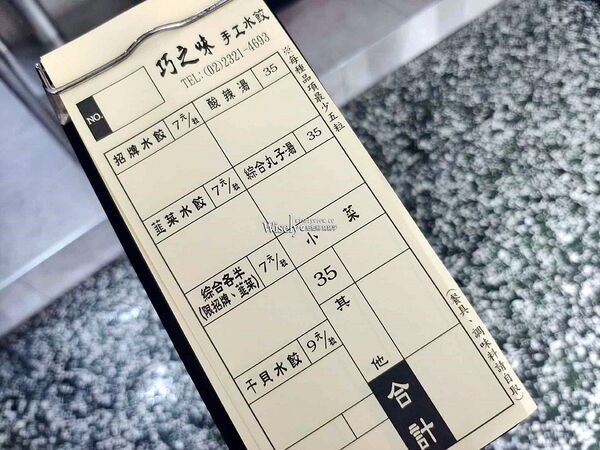 巧之味 手工水餃
TEL:(02)2321-4693
※每種品項最少五粒
NO.
招牌水餃 7元/粒
酸辣湯 35
韮菜水餃 7元/粒
綜合丸子湯 35
綜合各半
(限招牌、韮菜) 7元/粒
小菜
35
干貝水餃 9元/粒
其他
合計
(餐具、調味料請自取)
Wisely